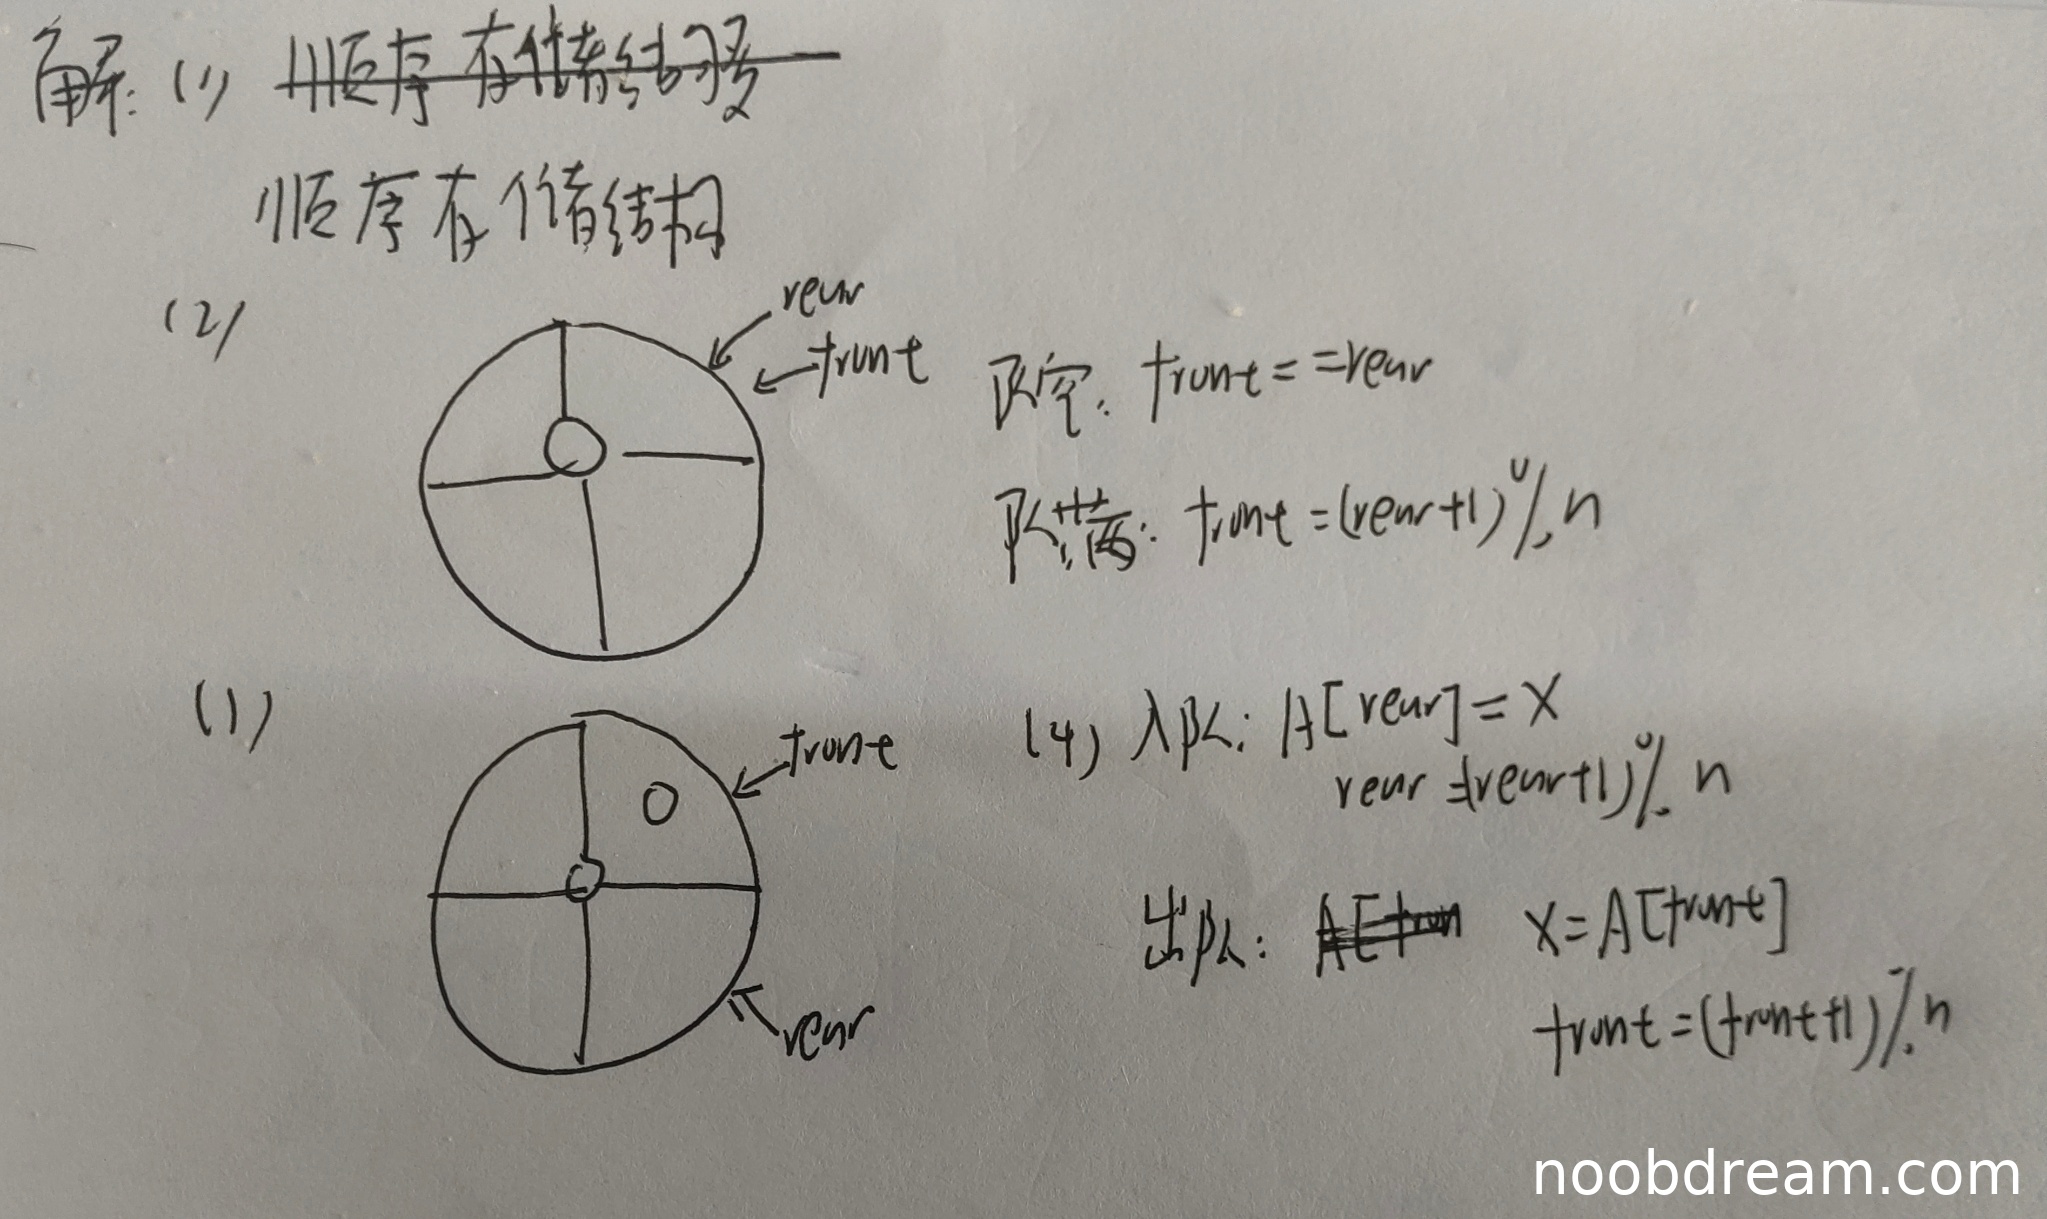 解: (1) 顺序存储结构
顺序存储结构
(2)
rear
front
队空: front==rear
队满: front=(rear+1)%n
(1)
front
rear
(4) 入队: A[rear]=X
rear=(rear+1)%n
出队: A[fron X=A[front]
front=(front+1)%n
noobdream.com